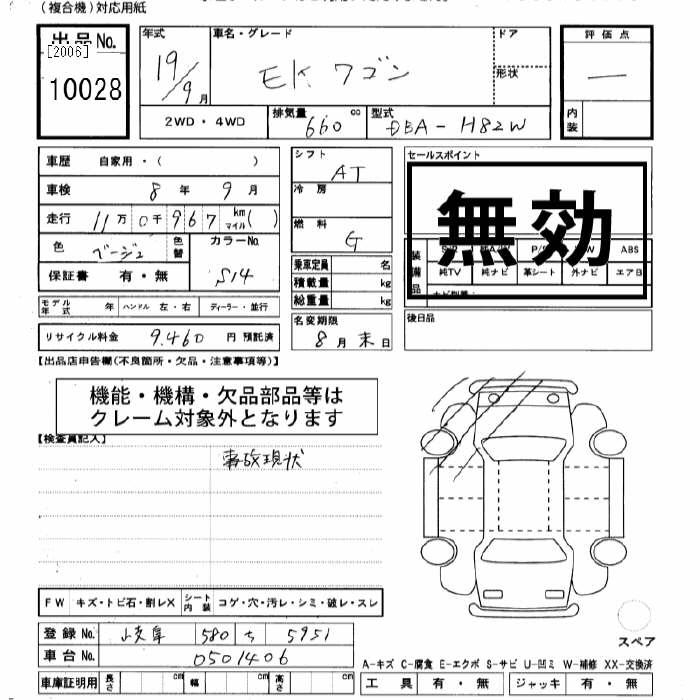 (複合機)対応用紙
出品No.
[2006]
10028
年式
19/9月
車名・グレード
EK ワゴン
ドア
形状
評価点
—
内装
2WD・4WD
排気量 660 cc
型式 DBA-H82W
車歴 自家用・( )
車検 8年 9月
走行 11万 0千 967 km マイル ( )
色 ベージュ 色替
カラーNo. S14
保証書 有・無
モデル年式 年 ハンドル 左・右 ディーラー・並行
リサイクル料金 9,460 円 預託済
シフト AT
冷房
燃料 G
乗車定員 名
積載量 kg
総重量 kg
名変期限
8月末日
セールスポイント
無効
装備品
ABS
純TV 純ナビ 革シート 外ナビ エアB
後日品
【出品店申告欄(不良箇所・欠品・注意事項等)】
機能・機構・欠品部品等は
クレーム対象外となります
【検査員記入】
事故現状
FW キズ・トビ石・割レX シート内装 コゲ・穴・汚レ・シミ・破レ・スレ
登録No. 岐阜 580 ち 5951
車台No. 0501406
車庫証明用 長さ cm 幅 cm 高さ cm
スペア
A-キズ C-腐食 E-エクボ S-サビ U-凹ミ W-補修 XX-交換済
工具 有・無 ジャッキ 有・無